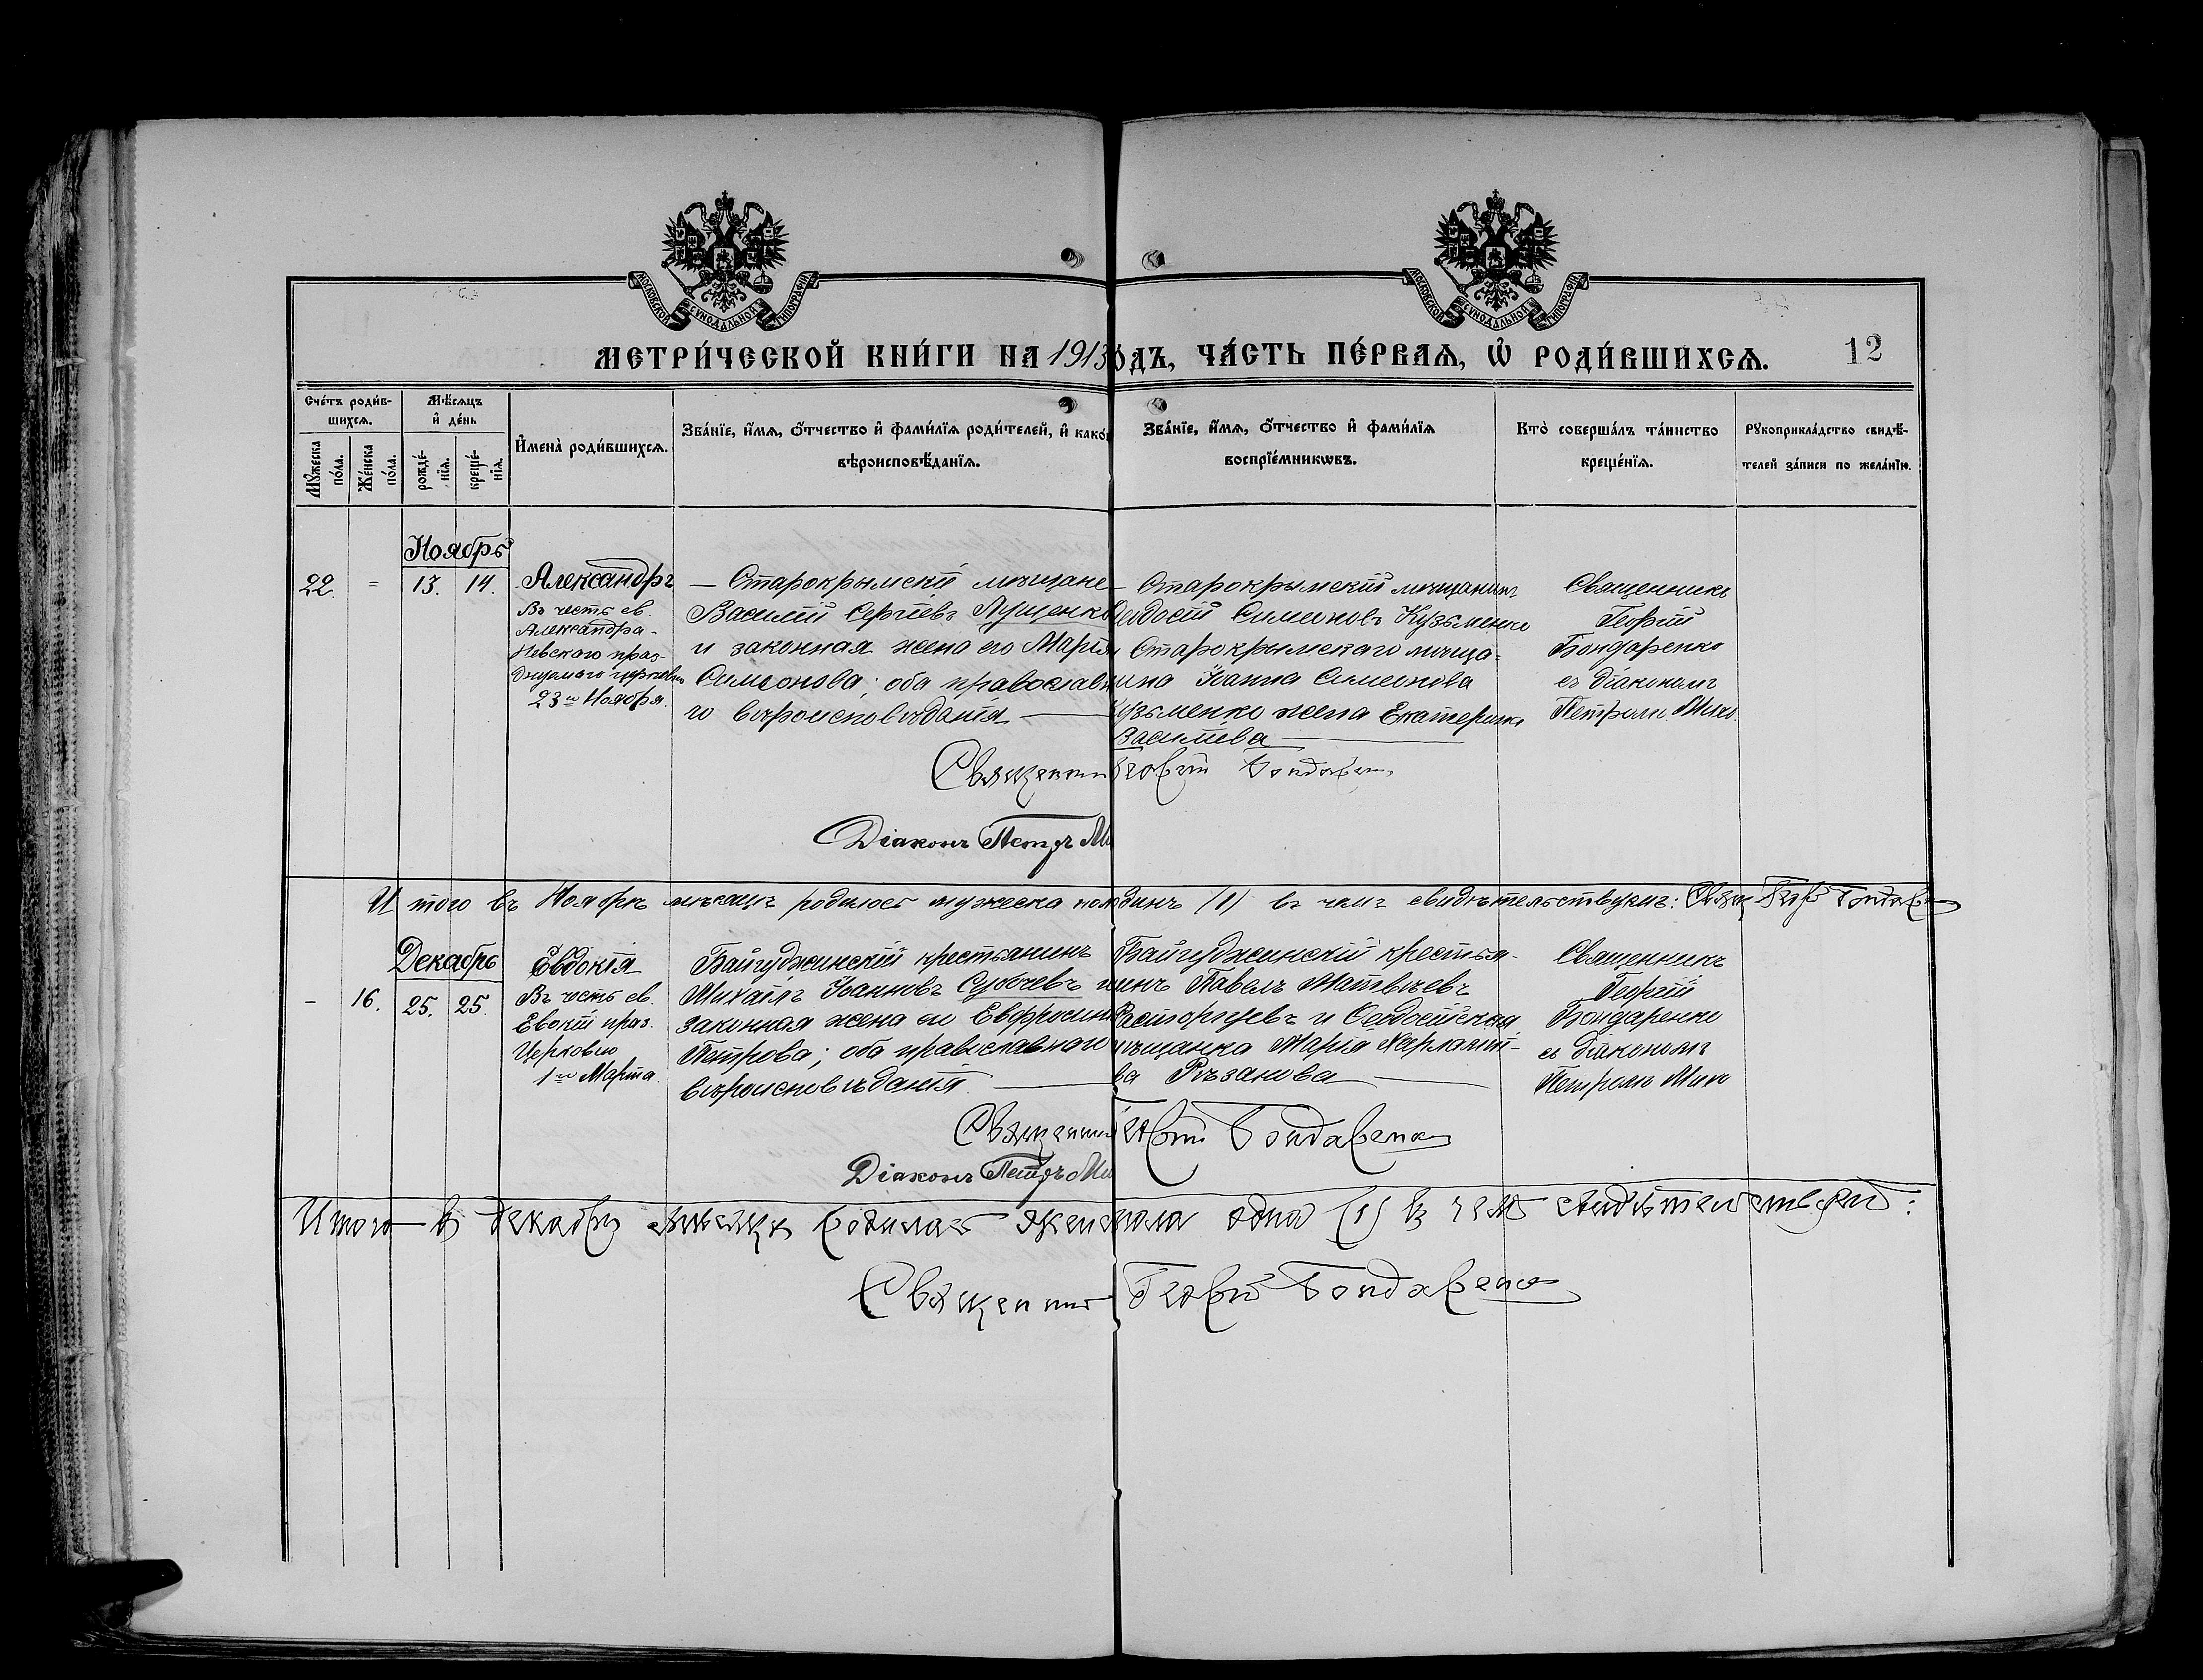 МОСКОВСКОЙ СѴНОДАЛЬНОЙ ТИПОГРАФІИ
МОСКОВСКОЙ СѴНОДАЛЬНОЙ ТИПОГРАФІИ
МЕТРИ́ЧЕСКОЙ КНИ́ГИ НА 1913 ОДЪ, ЧА́СТЬ ПЕ́РВАѦ, Ѡ҆ РОДИ́ВШИХСѦ.
12
Сче́тъ роди́в-
шихсѧ.
Мꙋжеска по́ла.
Же́нска по́ла.
Мѣ́сѧцъ
и҆ де́нь
рожде́-нїѧ.
креще́-нїѧ.
И҆мена̀ роди́вшихсѧ.
Зва́нїе, и҆́мѧ, ѻ҆́тчество и҆ фами́лїѧ роди́телей, и҆ како́
вѣроисповѣ́данїѧ.
Зва́нїе, и҆́мѧ, ѻ҆́тчество и҆ фами́лїѧ
воспрїе́мникѡвъ.
Кто̀ соверша́лъ та́инство
креще́нїѧ.
Рꙋкоприкла́дство свидѣ́-
телей за́писи по жела́нїю.
Ноябрь
22. = 13. 14.
Александръ
Въ честь св.
Александра-
Невскаго праз-
днуемаго церковью
23го Ноября.
— Старокрымскій мѣщане
Василій Сергіевъ Лущенко
и законная жена его Марія
Симеонова; оба православн
го вѣроисповѣданія. —
— Старокрымскій мѣщанинъ
Ѳеодосій Симеоновъ Кузьменко
Старокрымскаго мѣща-
ина Іоанна Симеонова
Кузьменко жена Екатерина
Василіева —
Священникъ
Георгій
Бондаренко
съ діакономъ
Петромъ
Священник Георгій Бондаренко
Діаконъ Петръ Ми
И того въ Ноябрѣ мѣсяцѣ родилось мужеска пол динъ (1) въ чемъ свидѣтельствуемъ: Свящ. Георгій Бондаренко
Декабрь
- 16. 25. 25.
Евдокія
Въ честь св.
Евокіи праз.
Церковью
1го Марта.
Байгуджинскій крестьянинъ
Михаилъ Іоанновъ Субочевъ и
законная жена его Евфросинія
Петрова; оба православнаго
вѣроисповѣданія —
Байгуджинскій крестья-
нинъ Павелъ Матвѣевъ
и Ѳеодосійская
мѣщанка Марія Харлампі-
ва Рѣзанова —
Священникъ
Георгій
Бондаренко
съ діакономъ
Петромъ
Священник Георгій Бондаренко
Діаконъ Петръ Ми
Итого въ декабрѣ мѣсяцѣ родилась женска пола одна (1) въ чемъ свидѣтельствуемъ:
Священникъ Георгій Бондаренко